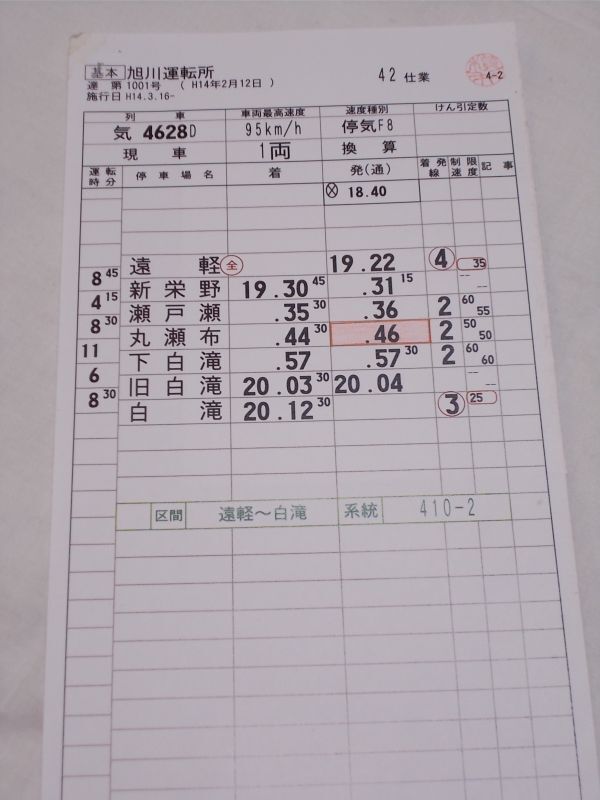 基本 旭川運転所 42 仕業 4-2
達 第 1001号 ( H14年2月12日 )
施行日 H14.3.16-
列 車 車両最高速度 速度種別 けん引定数
気 4628D 95km/h 停気F8
現 車 1両 換 算
運転時分 停車場名 着 発(通) 着発線 制限速度 記事
⊗ 18.40
遠 軽 全 19.22 4 35
8 45
新 栄 野 19.30 45 .31 15 -- --
4 15
瀬 戸 瀬 .35 30 .36 2 60 55
8 30
丸 瀬 布 .44 30 .46 2 50 50
11
下 白 滝 .57 .57 30 2 60 60
6
旧 白 滝 20.03 30 20.04 -- --
8 30
白 滝 20.12 30 3 25
区間 遠軽〜白滝 系統 410-2